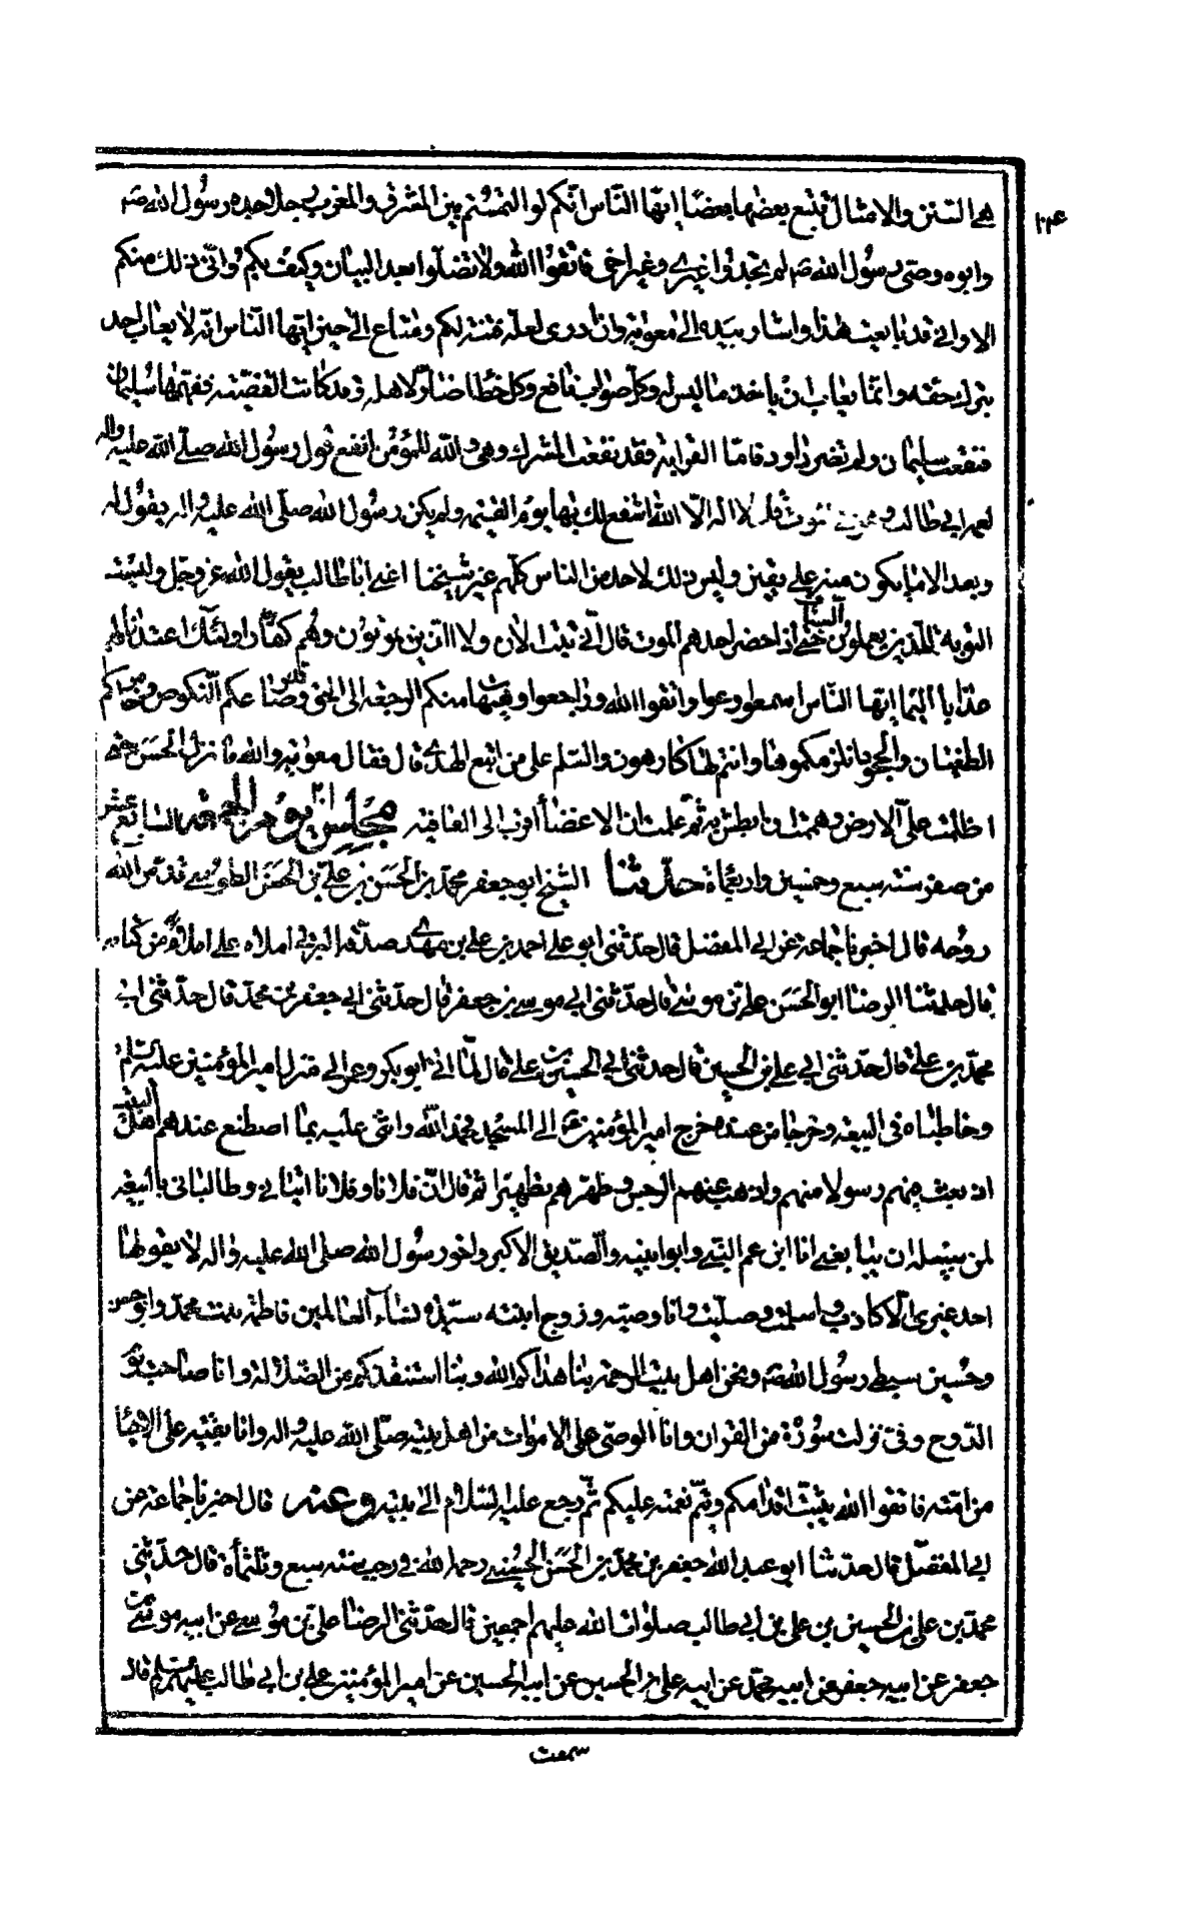 هي السنن والامثال يتبع بعضها بعضا ايها الناس انكم لو التمستم بين المشرق والمغرب رجلا جده رسول الله ص
وابوه وصي رسول الله ص لم تجدوا غيري وغير اخي فاتقوا الله ولا تضلوا بعد البيان وكيف بكم واني ذلك منكم
الا واني قد بايعت هذا واشار بيده الى معوية وان ادري لعله فتنة لكم ومتاع الى حين ايها الناس انه لا يعاب احد
بترك حقه وانما يعاب ان ياخذ ما ليس له وكل صواب نافع وكل خطا ضار لاهله وقد كانت القضية ففهمها سليمان
فنفعت سليمان ولم تضر داود فاما القرابة فقد نفعت المشرك وهي والله للمؤمن انفع قول رسول الله صلى الله عليه واله
لعمه ابي طالب وهو في الموت قل لا اله الا الله اشفع لك بها يوم القيمة ولم يكن رسول الله صلى الله عليه واله يقول له
ويعد الا ما يكون منه على يقين وليس ذلك لاحد من الناس كلهم غير شيخنا اعني ابا طالب يقول الله عز وجل وليست
التوبة للذين يعملون السيئات حتى اذا حضر احدهم الموت قال اني تبت الان ولا الذين يموتون وهم كفار اولئك اعتدنا لهم
عذابا اليما ايها الناس اسمعوا وعوا واتقوا الله وراجعوا وهيهات منكم الرجعة الى الحق وقد صارعكم النكوص وخامركم
الطغيان والجحود انلزمكموها وانتم لها كارهون والسلم على من اتبع الهدى قال فقال معوية والله ما نزل الحسن حتى
اظلمت علي الارض وهممت ان ابطش به ثم علمت ان الاغضاء اقرب الى العافية مجلس يوم الجمعة السابع عشر
من صفر سنة سبع وخمسين واربعمائة حدثنا الشيخ ابو جعفر محمد بن الحسن بن علي بن الحسن الطوسي قدس الله
روحه قال اخبرنا جماعة عن ابي المفضل قال حدثني ابو علي احمد بن علي بن مهدي صدقة البرقي املاه علي املاء من كتابه
قال حدثنا الرضا ابو الحسن علي بن موسى قال حدثني ابي موسى بن جعفر قال حدثني ابي جعفر بن محمد قال حدثني ابي
محمد بن علي قال حدثني ابي علي بن الحسين قال حدثني ابي الحسين بن علي قال لما اتى ابو بكر وعمر الى منزل امير المؤمنين عليه السلم
وخاطباه في البيعة وخرجا من عنده خرج امير المؤمنين ع الى المسجد فحمد الله واثنى عليه بما اصطنع عندهم اهل البيت
اذ بعث فيهم رسولا منهم واذهب عنهم الرجس وطهرهم تطهيرا ثم قال ان فلانا وفلانا اتياني وطالباني بالبيعة
لمن سبيله ان يبايعني انا ابن عم النبي وابو ابنيه والصديق الاكبر واخو رسول الله صلى الله عليه واله لا يقولها
احد غيري الا كاذب واسلمت وصليت وانا وصيه وزوج ابنته سيدة نساء العالمين فاطمة بنت محمد وابو حسن
وحسين سبطي رسول الله ص ونحن اهل بيت الرحمة بنا هداكم الله وبنا استنقذكم من الضلالة وانا صاحب يوم
الدوح وفي نزلت سورة من القران وانا الوصي على الاموات من اهل بيته صلى الله عليه واله وانا بقيته على الاحياء
من امته فاتقوا الله يثبت اقدامكم ويتم نعمته عليكم ثم رجع عليه السلام الى بيته وعنه قال اخبرنا جماعة عن
ابي المفضل قال حدثنا ابو عبد الله جعفر بن محمد بن الحسن الحسيني رحمه الله في رجب سنة سبع وثلثمأة قال حدثني
محمد بن علي بن الحسين بن علي بن ابي طالب صلوات الله عليهم اجمعين قال حدثني الرضا علي بن موسى عن ابيه موسى بن
جعفر عن ابيه جعفر عن ابيه محمد عن ابيه علي بن الحسين عن ابيه الحسين عن امير المؤمنين علي بن ابي طالب عليهم السلم قال
سمعت